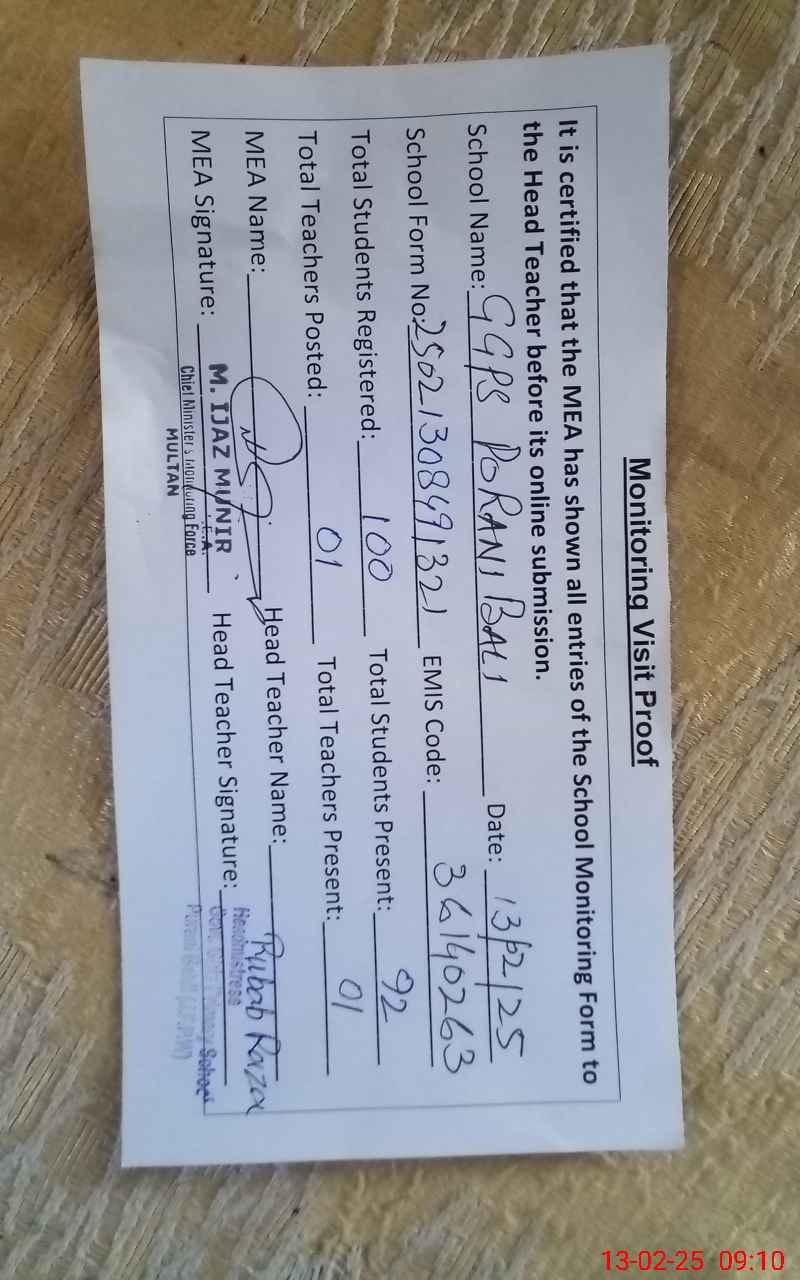 Monitoring Visit Proof
It is certified that the MEA has shown all entries of the School Monitoring Form to
the Head Teacher before its online submission.
School Name: GGPS PORANI BALI Date: 13/2/25
School Form No: 25021308491321 EMIS Code: 36140263
Total Students Registered: 100 Total Students Present: 92
Total Teachers Posted: 01 Total Teachers Present: 01
MEA Name: Head Teacher Name: Rubab Raza
MEA Signature: Head Teacher Signature:
M. IJAZ MUNIR
Chief Minister's Monitoring Force
MULTAN
Headmistress
Primary School
13-02-25 09:10